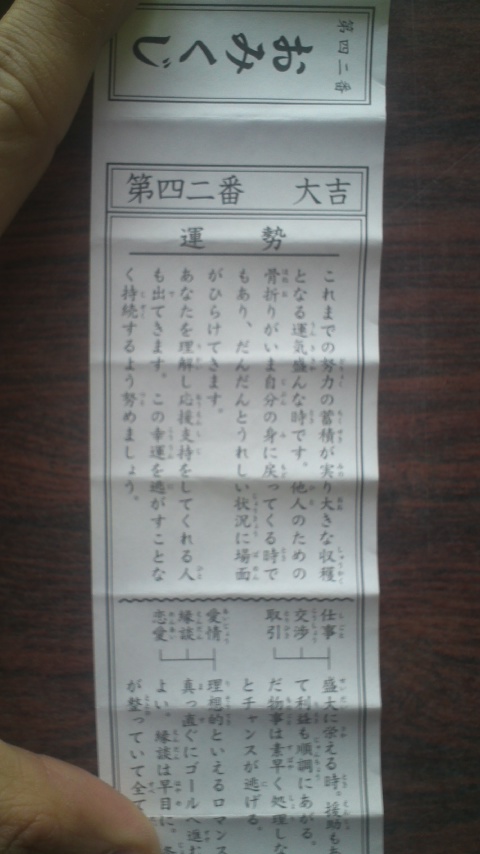 第四二番
おみくじ
第四二番 大吉
運勢
これまでの努力の蓄積が実り大きな収穫
となる運気盛んな時です。他人のための
骨折りがいま自分の身に戻ってくる時で
もあり、だんだんとうれしい状況に場面
がひらけてきます。
あなたを理解し応援支持をしてくれる人
も出てきます。この幸運を逃がすことな
く持続するよう努めましょう。
仕事
交渉
取引
盛大に栄える時。援助も
て利益も順調にあがる。
だ物事は素早く処理しな
とチャンスが逃げる。
愛情
縁談
恋愛
理想的といえるロマンス
真っ直ぐにゴールへ進む
よい。縁談は早目に。
が整っていて全て